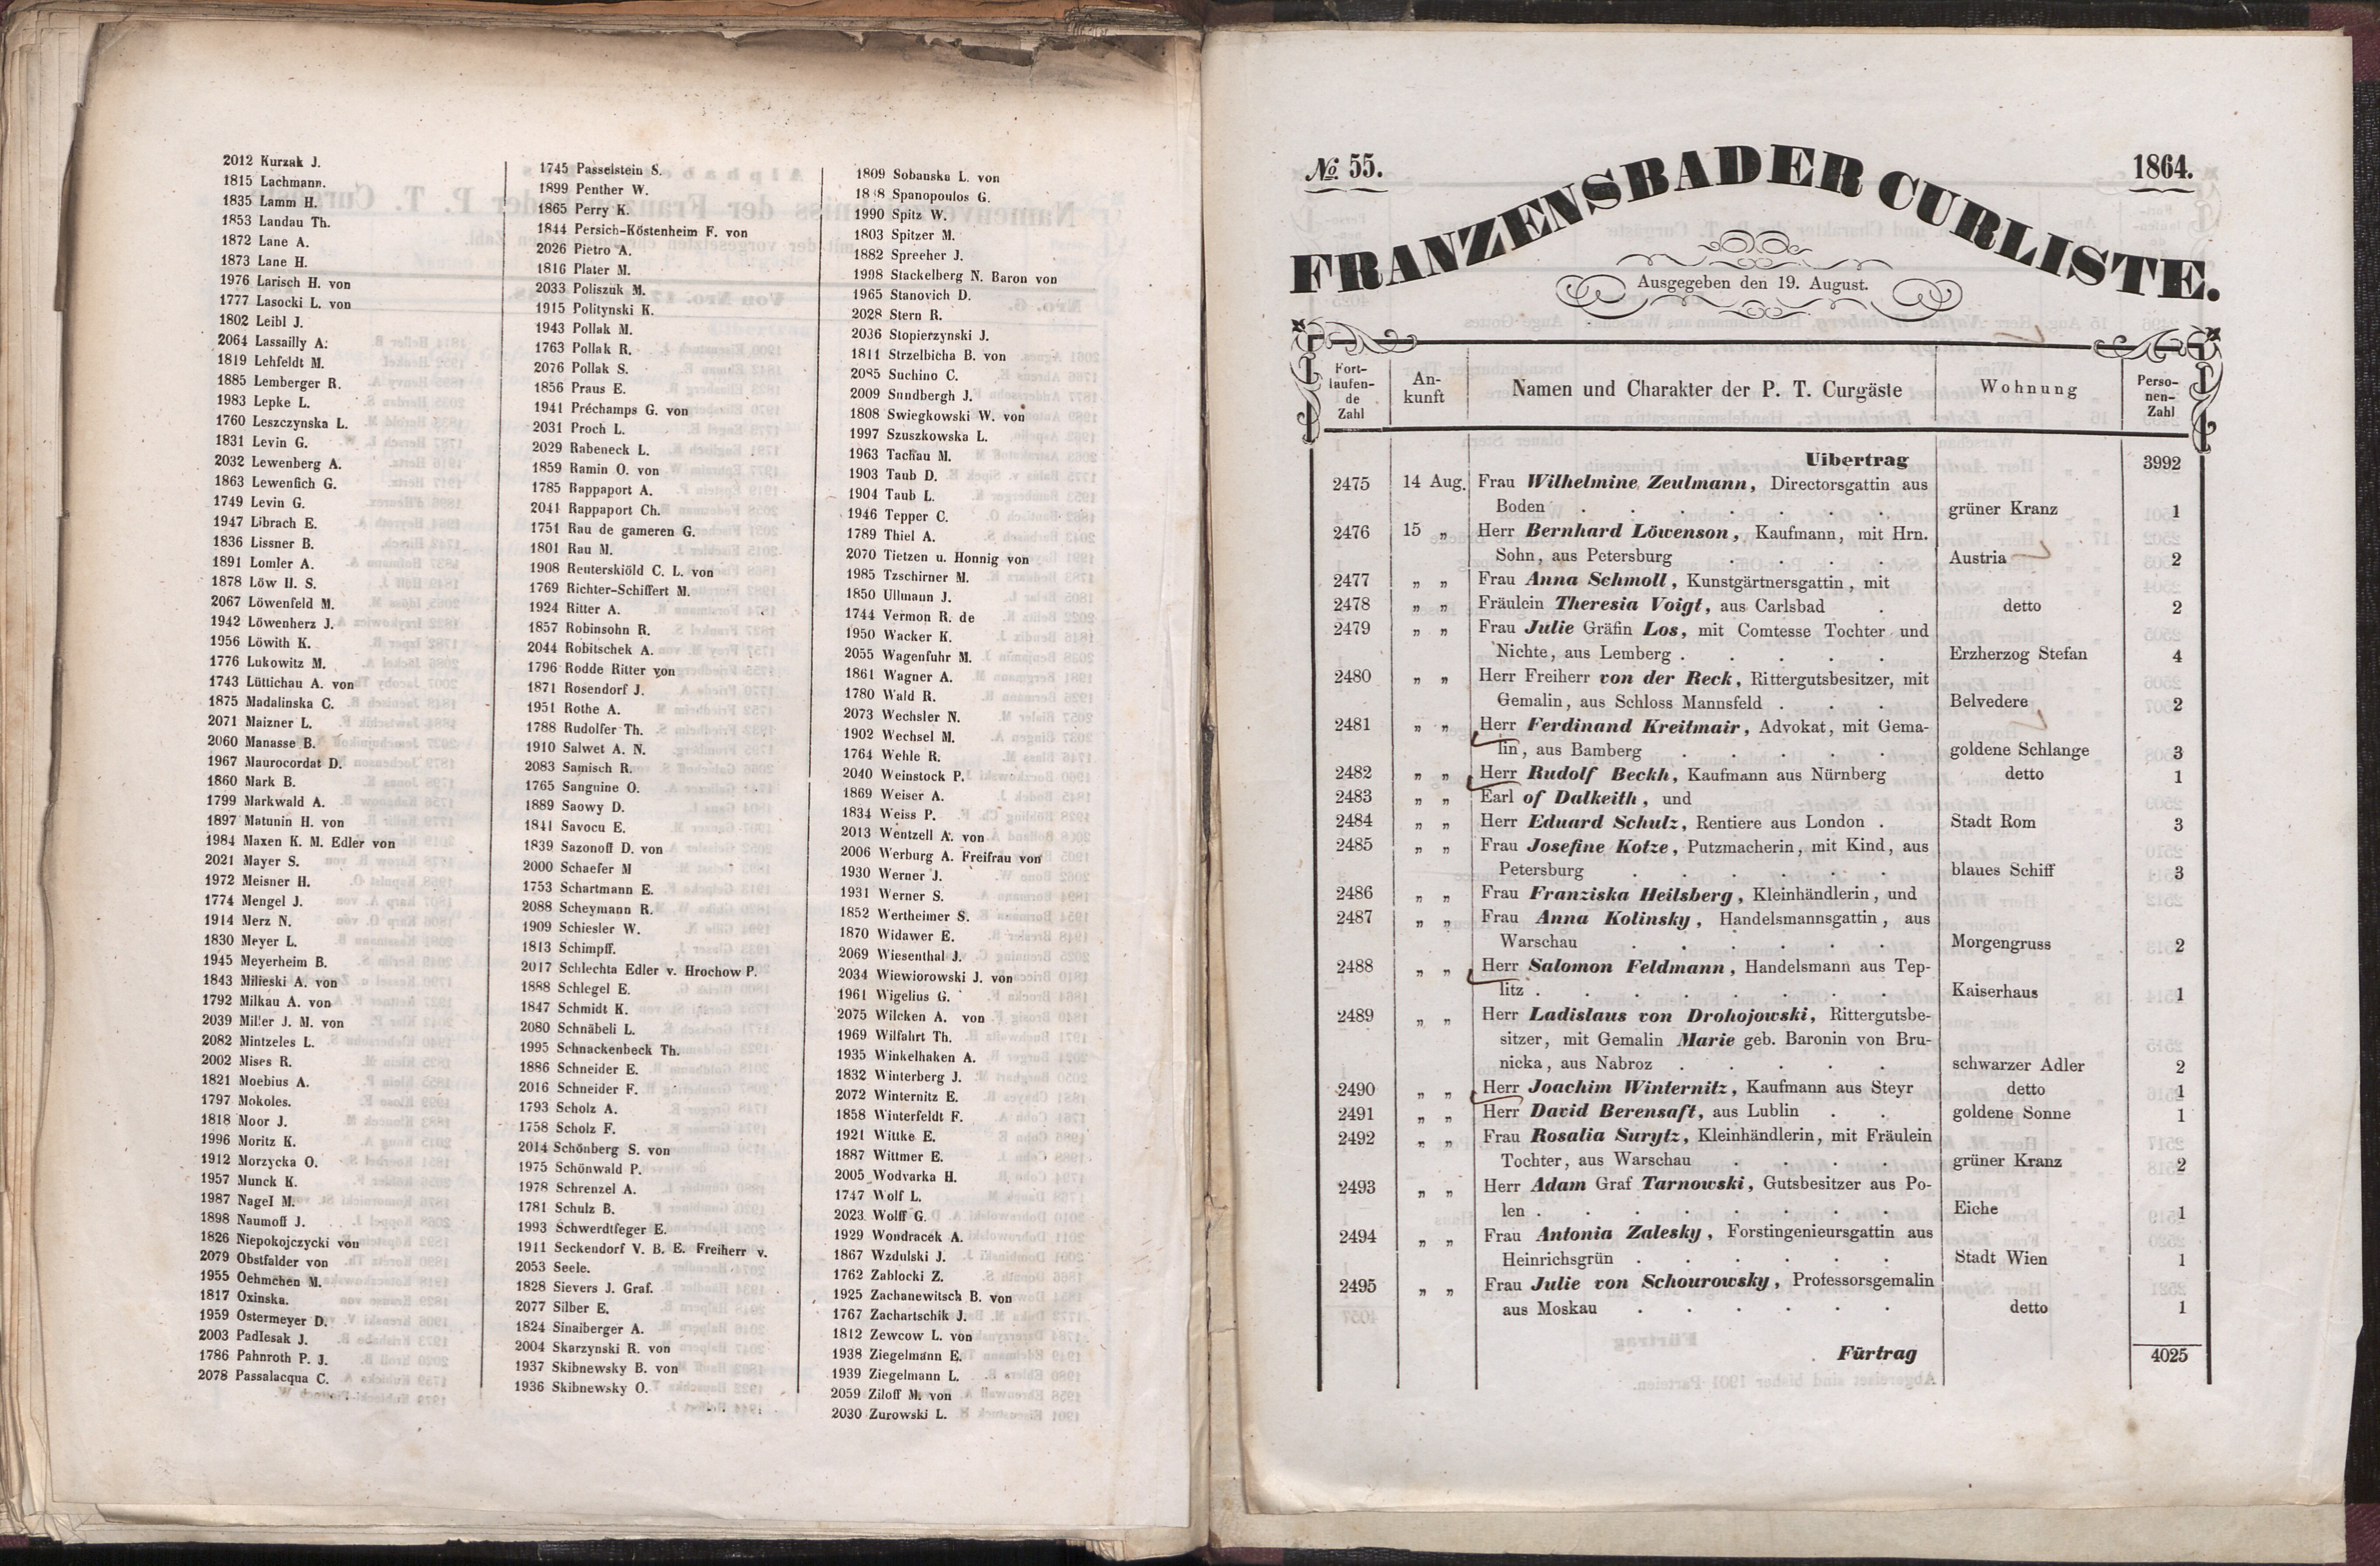 2012 Kurzak J.
1815 Lachmann.
1835 Lamm H.
1853 Landau Th.
1872 Lane A.
1873 Lane H.
1976 Larisch H. von
1777 Lasocki L. von
1802 Leibl J.
2064 Lassailly A.
1819 Lehfeldt M.
1885 Lemberger R.
1983 Lepke L.
1760 Leszczynska L.
1831 Levin G.
2032 Lewenberg A.
1863 Lewenfich G.
1749 Levin G.
1947 Librach E.
1836 Lissner B.
1891 Lomler A.
1878 Löw H. S.
2067 Löwenfeld M.
1942 Löwenherz J.
1956 Löwith K.
1776 Lukowitz M.
1743 Lüttichau A. von
1875 Madalinska C.
2071 Maizner L.
2060 Manasse B.
1967 Maurocordat D.
1860 Mark B.
1799 Markwald A.
1897 Matunin H. von
1984 Maxen K. M. Edler von
2021 Mayer S.
1972 Meisner H.
1774 Mengel J.
1914 Merz N.
1830 Meyer L.
1945 Meyerheim B.
1843 Milieski A. von
1792 Milkau A. von
2039 Miller J. M. von
2082 Mintzeles L.
2002 Mises R.
1821 Moebius A.
1797 Mokoles.
1818 Moor J.
1996 Moritz K.
1912 Morzycka O.
1957 Munck K.
1987 Nagel M.
1898 Naumoff J.
1826 Niepokojczycki von
2079 Obstfalder von
1955 Oehmchen M.
1817 Oxinska.
1959 Ostermeyer D.
2003 Padlesak J.
1786 Pahnroth P. J.
2078 Passalacqua C.
1745 Passelstein S.
1899 Penther W.
1865 Perry K.
1844 Persich-Köstenheim F. von
2026 Pietro A.
1816 Plater M.
2033 Poliszuk M.
1915 Politynski K.
1943 Pollak M.
1763 Pollak R.
2076 Pollak S.
1856 Praus E.
1941 Préchamps G. von
2031 Proch L.
2029 Rabeneck L.
1859 Ramin O. von
1785 Rappaport A.
2041 Rappaport Ch.
1751 Rau de gameren G.
1801 Rau M.
1908 Reuterskiöld C. L. von
1769 Richter-Schiffert M.
1924 Ritter A.
1857 Robinsohn R.
2044 Robitschek A.
1796 Rodde Ritter von
1871 Rosendorf J.
1951 Rothe A.
1788 Rudolfer Th.
1910 Salwet A. N.
2083 Samisch R.
1765 Sanguine O.
1889 Saowy D.
1841 Savocu E.
1839 Sazonoff D. von
2000 Schaefer M
1753 Schartmann E.
2088 Scheymann R.
1909 Schiesler W.
1813 Schimpff.
2017 Schlechta Edler v. Hrochow P.
1888 Schlegel E.
1847 Schmidt K.
2080 Schnäbeli L.
1995 Schnackenbeck Th.
1886 Schneider E.
2016 Schneider F.
1793 Scholz A.
1758 Scholz F.
2014 Schönberg S. von
1975 Schönwald P.
1978 Schrenzel A.
1781 Schulz B.
1993 Schwerdtfeger E.
1911 Seckendorf V. B. E. Freiherr v.
2053 Seele.
1828 Sievers J. Graf.
2077 Silber E.
1824 Sinaiberger A.
2004 Skarzynski R. von
1937 Skibnewsky B. von
1936 Skibnewsky O.
1809 Sobanska L. von
18 8 Spanopoulos G.
1990 Spitz W.
1803 Spitzer M.
1882 Spreeher J.
1998 Stackelberg N. Baron von
1965 Stanovich D.
2028 Stern R.
2036 Stopierzynski J.
1811 Strzelbicha B. von
2085 Suchino C.
2009 Sundbergh J.
1808 Swiegkowski W. von
1997 Szuszkowska L.
1963 Tachau M.
1903 Taub D.
1904 Taub L.
1946 Tepper C.
1789 Thiel A.
2070 Tietzen u. Honnig von
1985 Tzschirner M.
1850 Ullmann J.
1744 Vermon R. de
1950 Wacker K.
2055 Wagenfuhr M.
1861 Wagner A.
1780 Wald R.
2073 Wechsler N.
1902 Wechsel M.
1764 Wehle R.
2040 Weinstock P.
1869 Weiser A.
1834 Weiss P.
2013 Wentzell A. von
2006 Werburg A. Freifrau von
1930 Werner J.
1931 Werner S.
1852 Wertheimer S.
1870 Widawer E.
2069 Wiesenthal J.
2034 Wiewiorowski J. von
1961 Wigelius G.
2075 Wilcken A. von
1969 Wilfahrt Th.
1935 Winkelhaken A.
1832 Winterberg J.
2072 Winternitz E.
1858 Winterfeldt F.
1921 Wittke E.
1887 Wittmer E.
2005 Wodvarka H.
1747 Wolf L.
2023 Wolff G.
1929 Wondracek A.
1867 Wzdulski J.
1762 Zablocki Z.
1925 Zachanewitsch B. von
1767 Zachartschik J.
1812 Zewcow L. von
1938 Ziegelmann E.
1939 Ziegelmann L.
2059 Ziloff M. von
2030 Zurowski L.
No. 55. 1864.
FRANZENSBADER CURLISTE.
Ausgegeben den 19. August.
Fort-laufen-de Zahl An-kunft Namen und Charakter der P. T. Curgäste Wohnung Perso-nen-Zahl
Uibertrag 3992
2475 14 Aug. Frau Wilhelmine Zeulmann, Directorsgattin aus
Boden . . . . . . . grüner Kranz 1
2476 15 „ Herr Bernhard Löwenson, Kaufmann, mit Hrn.
Sohn, aus Petersburg . . . . Austria 2
2477 „ „ Frau Anna Schmoll, Kunstgärtnersgattin, mit
2478 „ „ Fräulein Theresia Voigt, aus Carlsbad . detto 2
2479 „ „ Frau Julie Gräfin Los, mit Comtesse Tochter und
Nichte, aus Lemberg . . . . . Erzherzog Stefan 4
2480 „ „ Herr Freiherr von der Reck, Rittergutsbesitzer, mit
Gemalin, aus Schloss Mannsfeld . . . Belvedere 2
2481 „ „ Herr Ferdinand Kreitmair, Advokat, mit Gema-
lin, aus Bamberg . . . . . goldene Schlange 3
2482 „ „ Herr Rudolf Beckh, Kaufmann aus Nürnberg detto 1
2483 „ „ Earl of Dalkeith, und
2484 „ „ Herr Eduard Schulz, Rentiere aus London . Stadt Rom 3
2485 „ „ Frau Josefine Kotze, Putzmacherin, mit Kind, aus
Petersburg . . . . . . blaues Schiff 3
2486 „ „ Frau Franziska Heilsberg, Kleinhändlerin, und
2487 „ „ Frau Anna Kolinsky, Handelsmannsgattin, aus
Warschau . . . . . . Morgengruss 2
2488 „ „ Herr Salomon Feldmann, Handelsmann aus Tep-
litz . . . . . . . . Kaiserhaus 1
2489 „ „ Herr Ladislaus von Drohojowski, Rittergutsbe-
sitzer, mit Gemalin Marie geb. Baronin von Bru-
nicka, aus Nabroz . . . . . schwarzer Adler 2
2490 „ „ Herr Joachim Winternitz, Kaufmann aus Steyr detto 1
2491 „ „ Herr David Berensaft, aus Lublin . . goldene Sonne 1
2492 „ „ Frau Rosalia Surytz, Kleinhändlerin, mit Fräulein
Tochter, aus Warschau . . . . grüner Kranz 2
2493 „ „ Herr Adam Graf Tarnowski, Gutsbesitzer aus Po-
len . . . . . . . . Eiche 1
2494 „ „ Frau Antonia Zalesky, Forstingenieursgattin aus
Heinrichsgrün . . . . . . Stadt Wien 1
2495 „ „ Frau Julie von Schourowsky, Professorsgemalin
aus Moskau . . . . . . detto 1
Fürtrag 4025